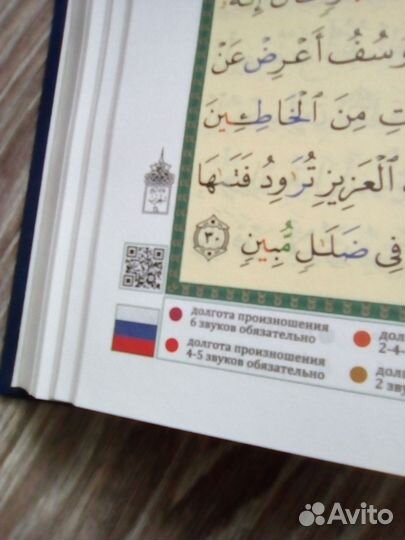 يُوسُفُ أَعْرِضْ عَنْ
مِنَ ٱلْخَاطِـِٔينَ
ٱلْعَزِيزِ تُرَٰوِدُ فَتَىٰهَا
فِى ضَلَـٰلٍ مُّبِينٍ ٣٠
долгота произношения
6 звуков обязательно
долгота произношения
4-5 звуков обязательно
2-4-
2
Avito